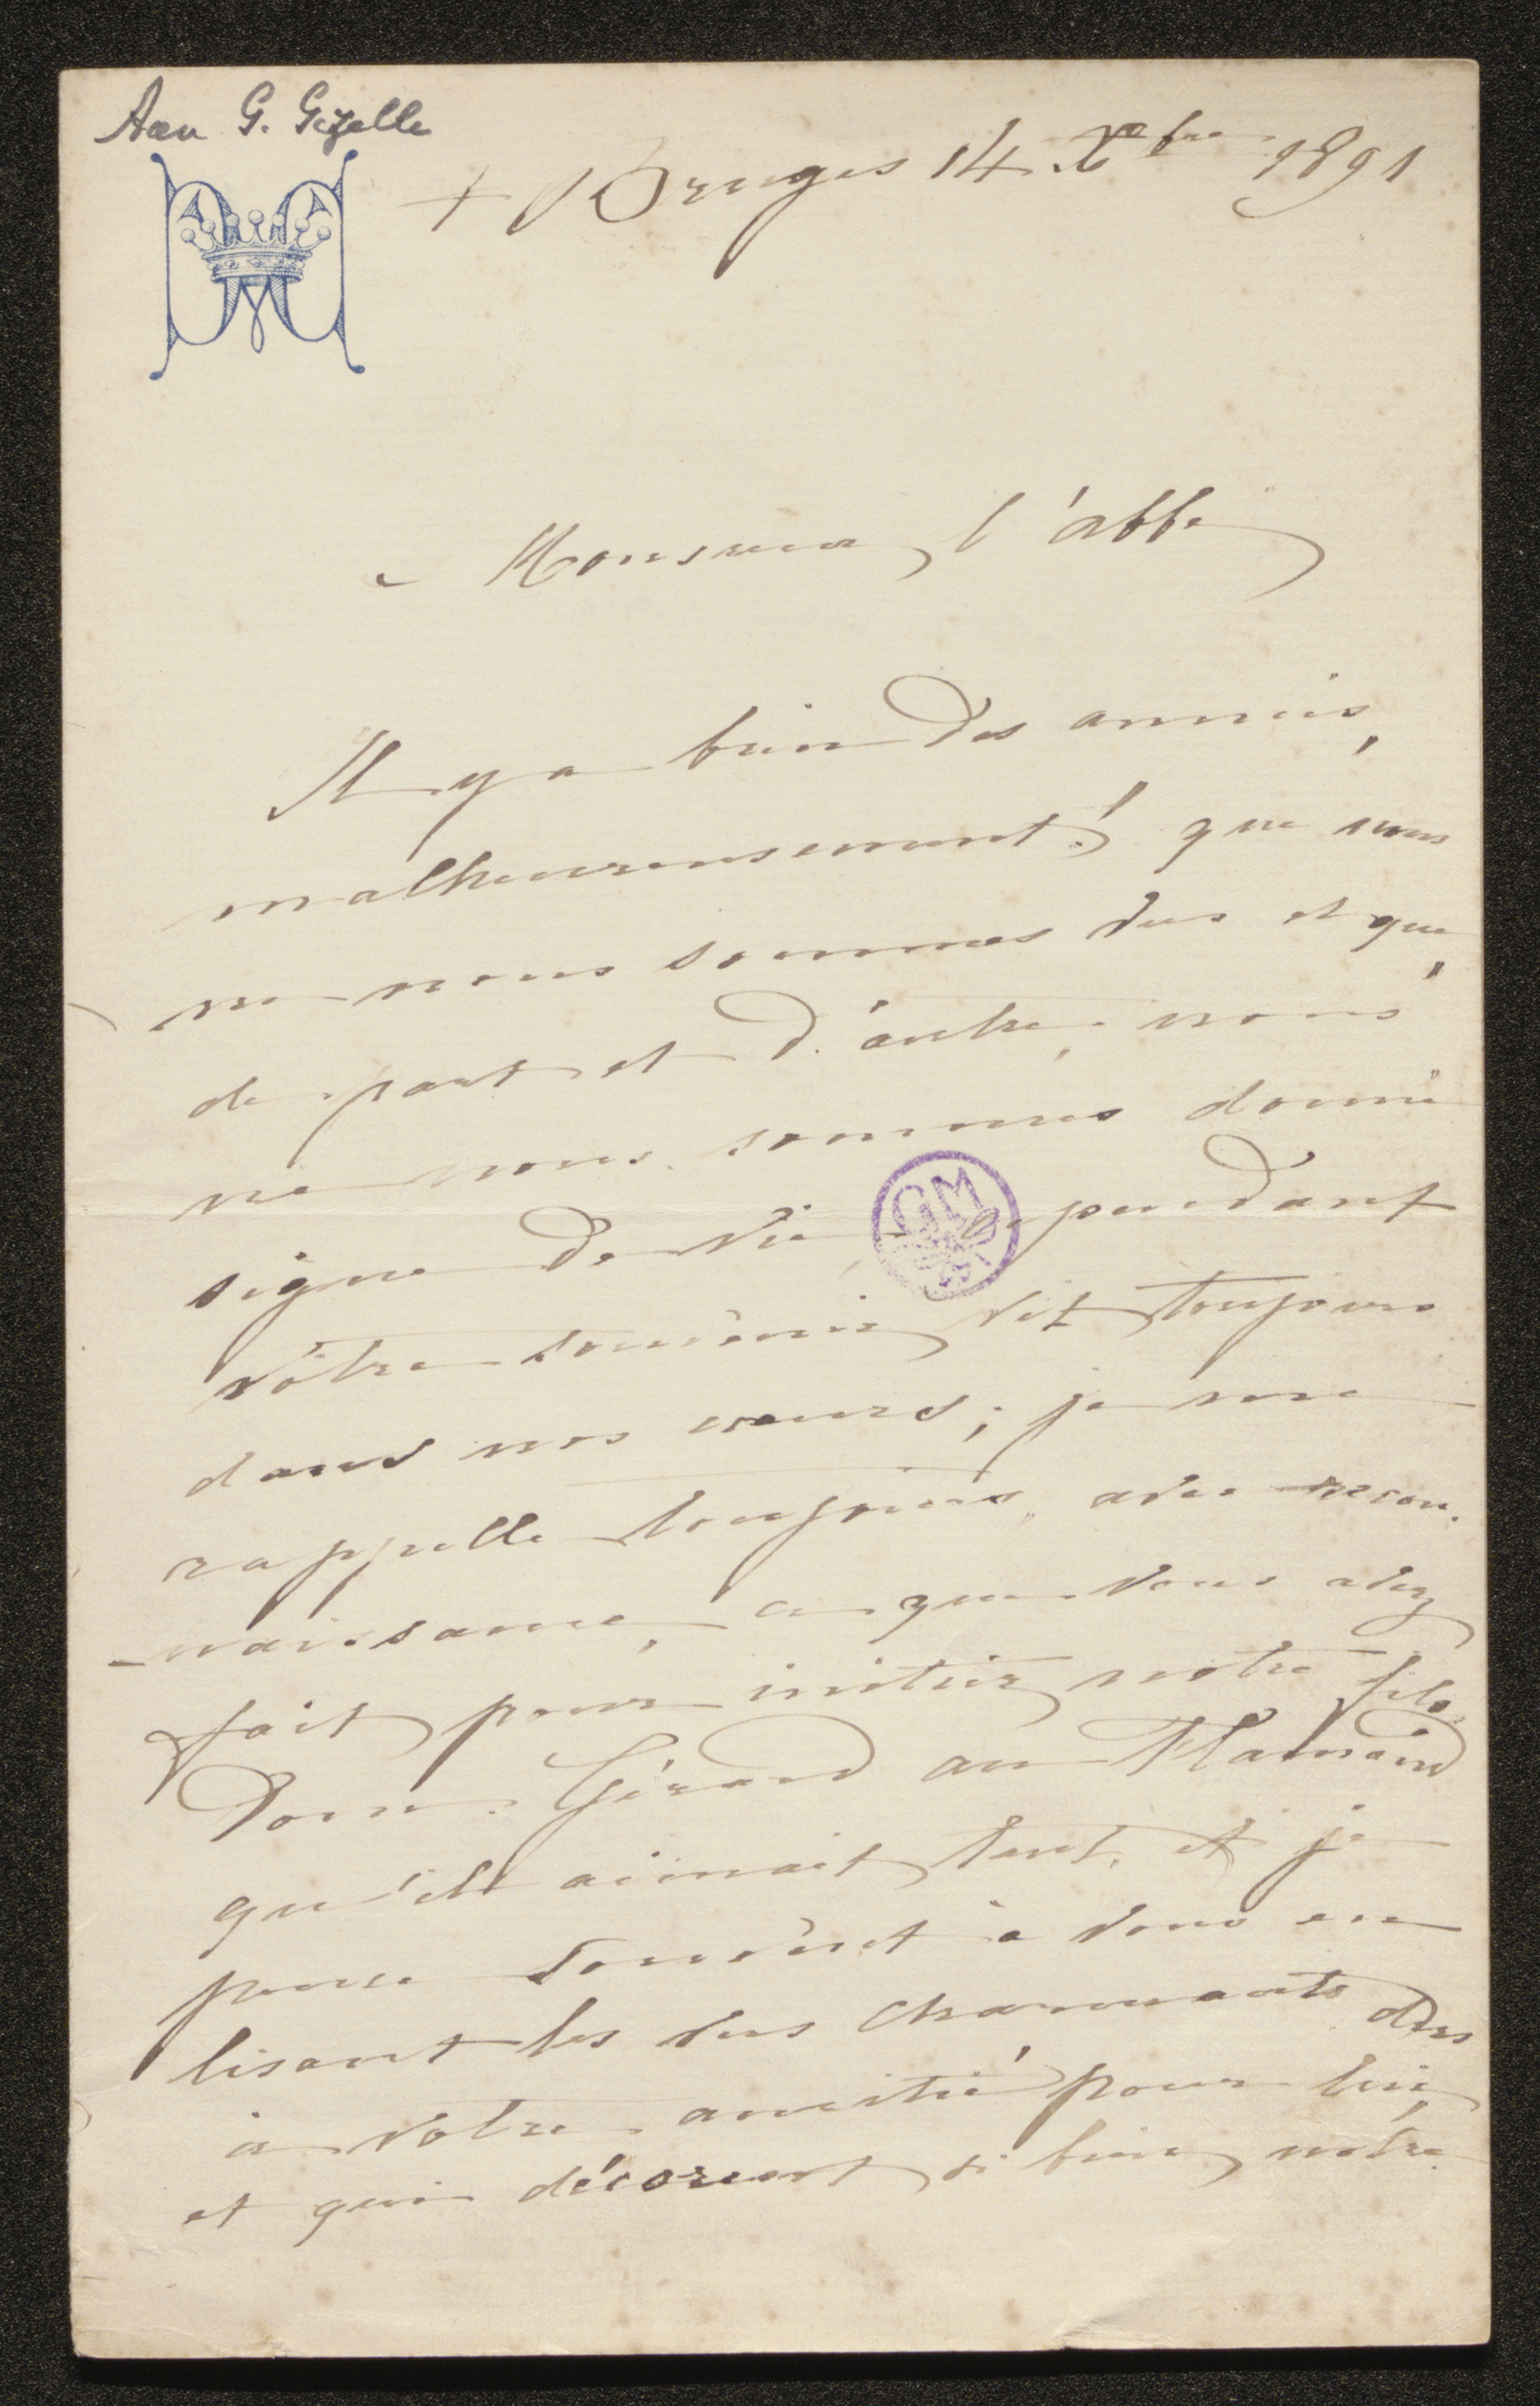 Aan G. Gezelle
+ Bruges 14 Xbre 1891
Monsieur l'abbé
Il y a bien des années,
malheureusement! que nous
ne nous sommes vus et que,
de part et d'autre, nous
ne nous sommes donné
signe de vie, cependant
votre souvenir vit toujours
dans nos coeurs; je me
rappelle toujours, avec recon-
-naissance, ce que vous avez
fait pour initier notre fils,
Dom. Gérard au Flamand
qu'il aimait tant, et je
pense souvent à vous en
lisant les vers charmants dus
à votre amitié pour lui,
et qui décorent si bien notre
GM